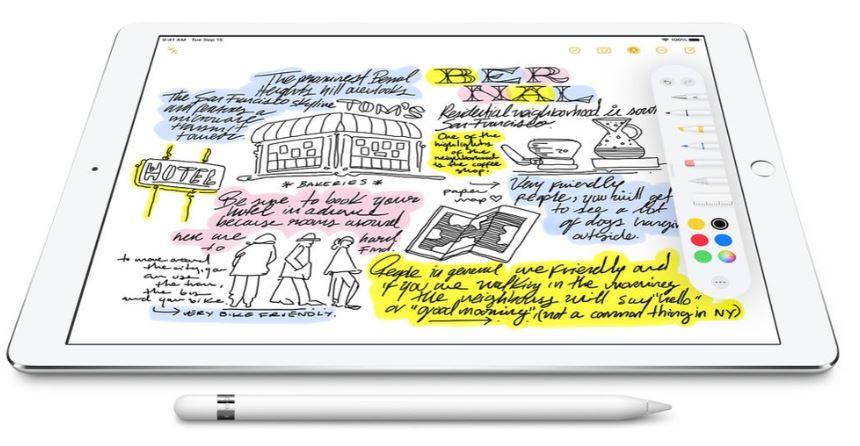 9:41 AM Tue Sep 15
100%
The prominest Bernal
Heights hill overlooks
the San Francisco skyline
and features
a
microwave
transmit
tower.
TOM'S
* BAKERIES *
HOTEL
BERNAL
Residential neighborhood is
San Francisco
One of the
highlights
of the
neighborhood
is the coffee
shop.
paper
map
Very friendly
people, you will get
to see a lot
of dogs hanging
outside.
Be sure to book your
hotel in advance
because rooms around
here are
hard
to
find.
to move around
the city, you
can use
the tram,
the bus
and you bike.
VERY BIKE FRIENDLY.
People in general are friendly and
if you are walking in the morning
the neighbors will say "hello"
or "good morning" (not a common thing in NY)